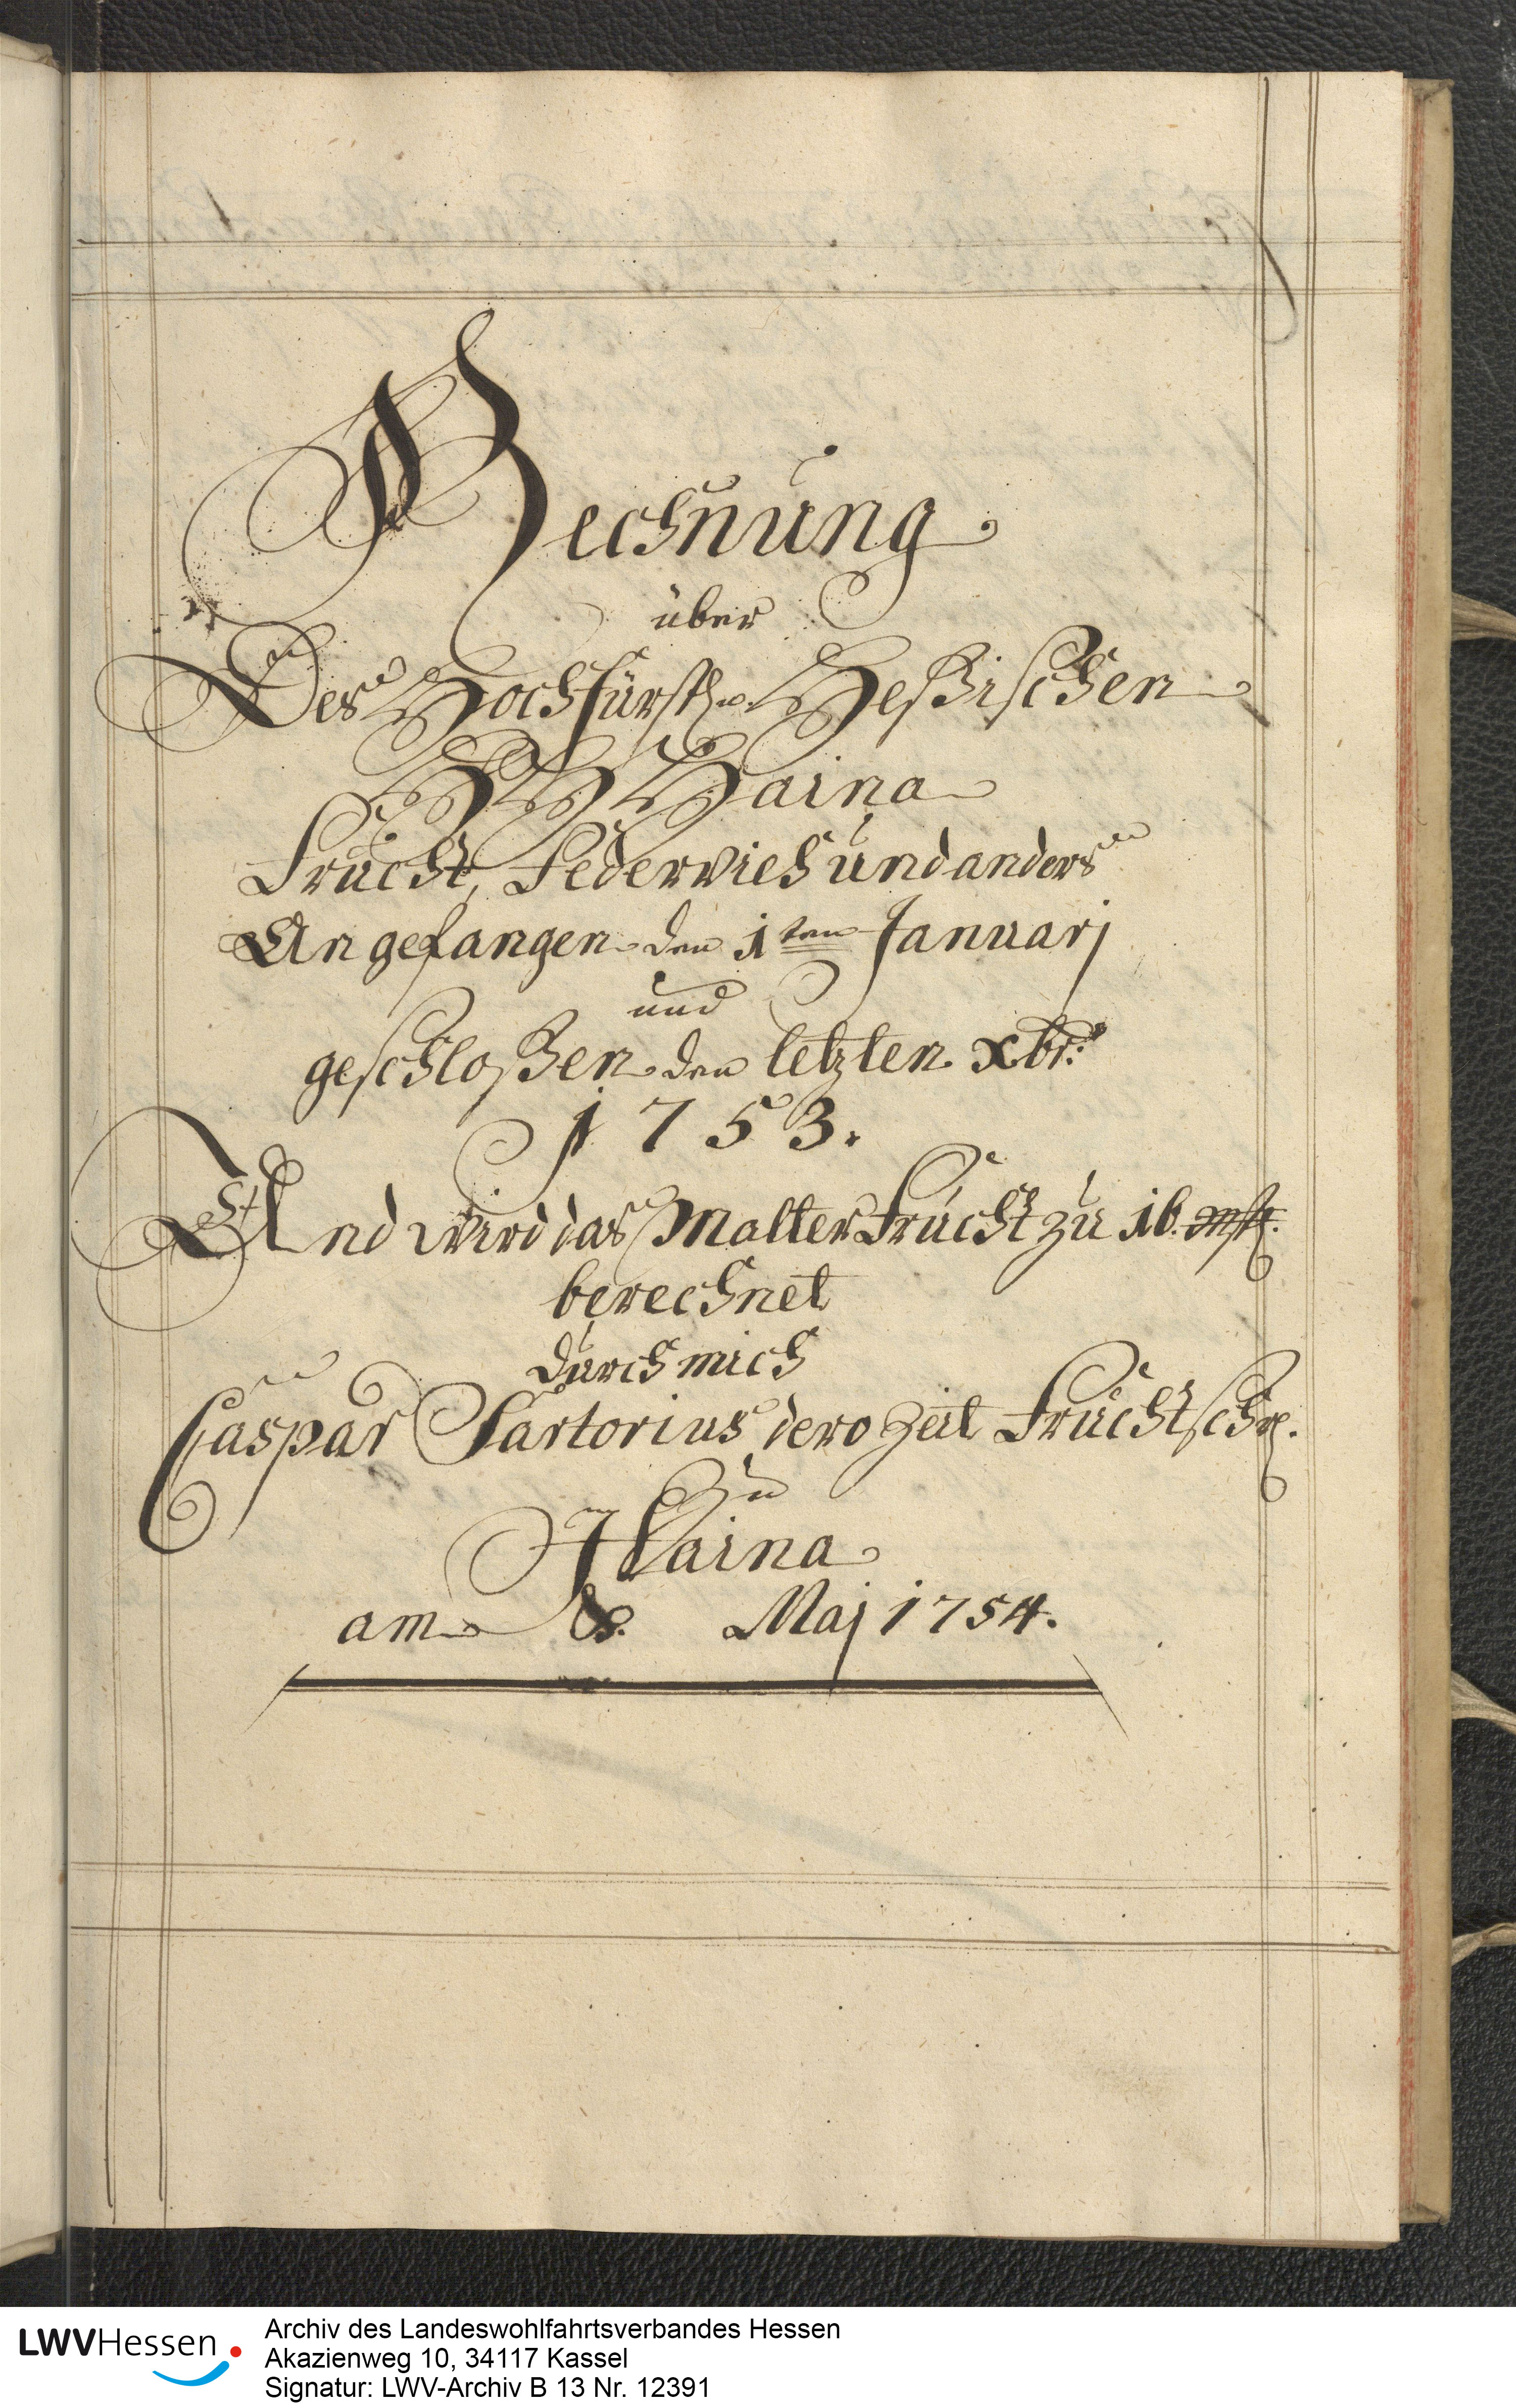 Rechnung
über
Des Hochfürstl. Heßischen
HH Haina
Frucht, Federvieh und anders
Angefangen den 1ten Januarj
und
geschloßen den letzten xbr:
1753.
Und wird das Malter Frucht zu 16.
berechnet
durch mich
Caspar Sartorius dero Zeit Fruchtschr.
Zu
Haina
am 8. Maj 1754.
LWVHessen
Archiv des Landeswohlfahrtsverbandes Hessen
Akazienweg 10, 34117 Kassel
Signatur: LWV-Archiv B 13 Nr. 12391